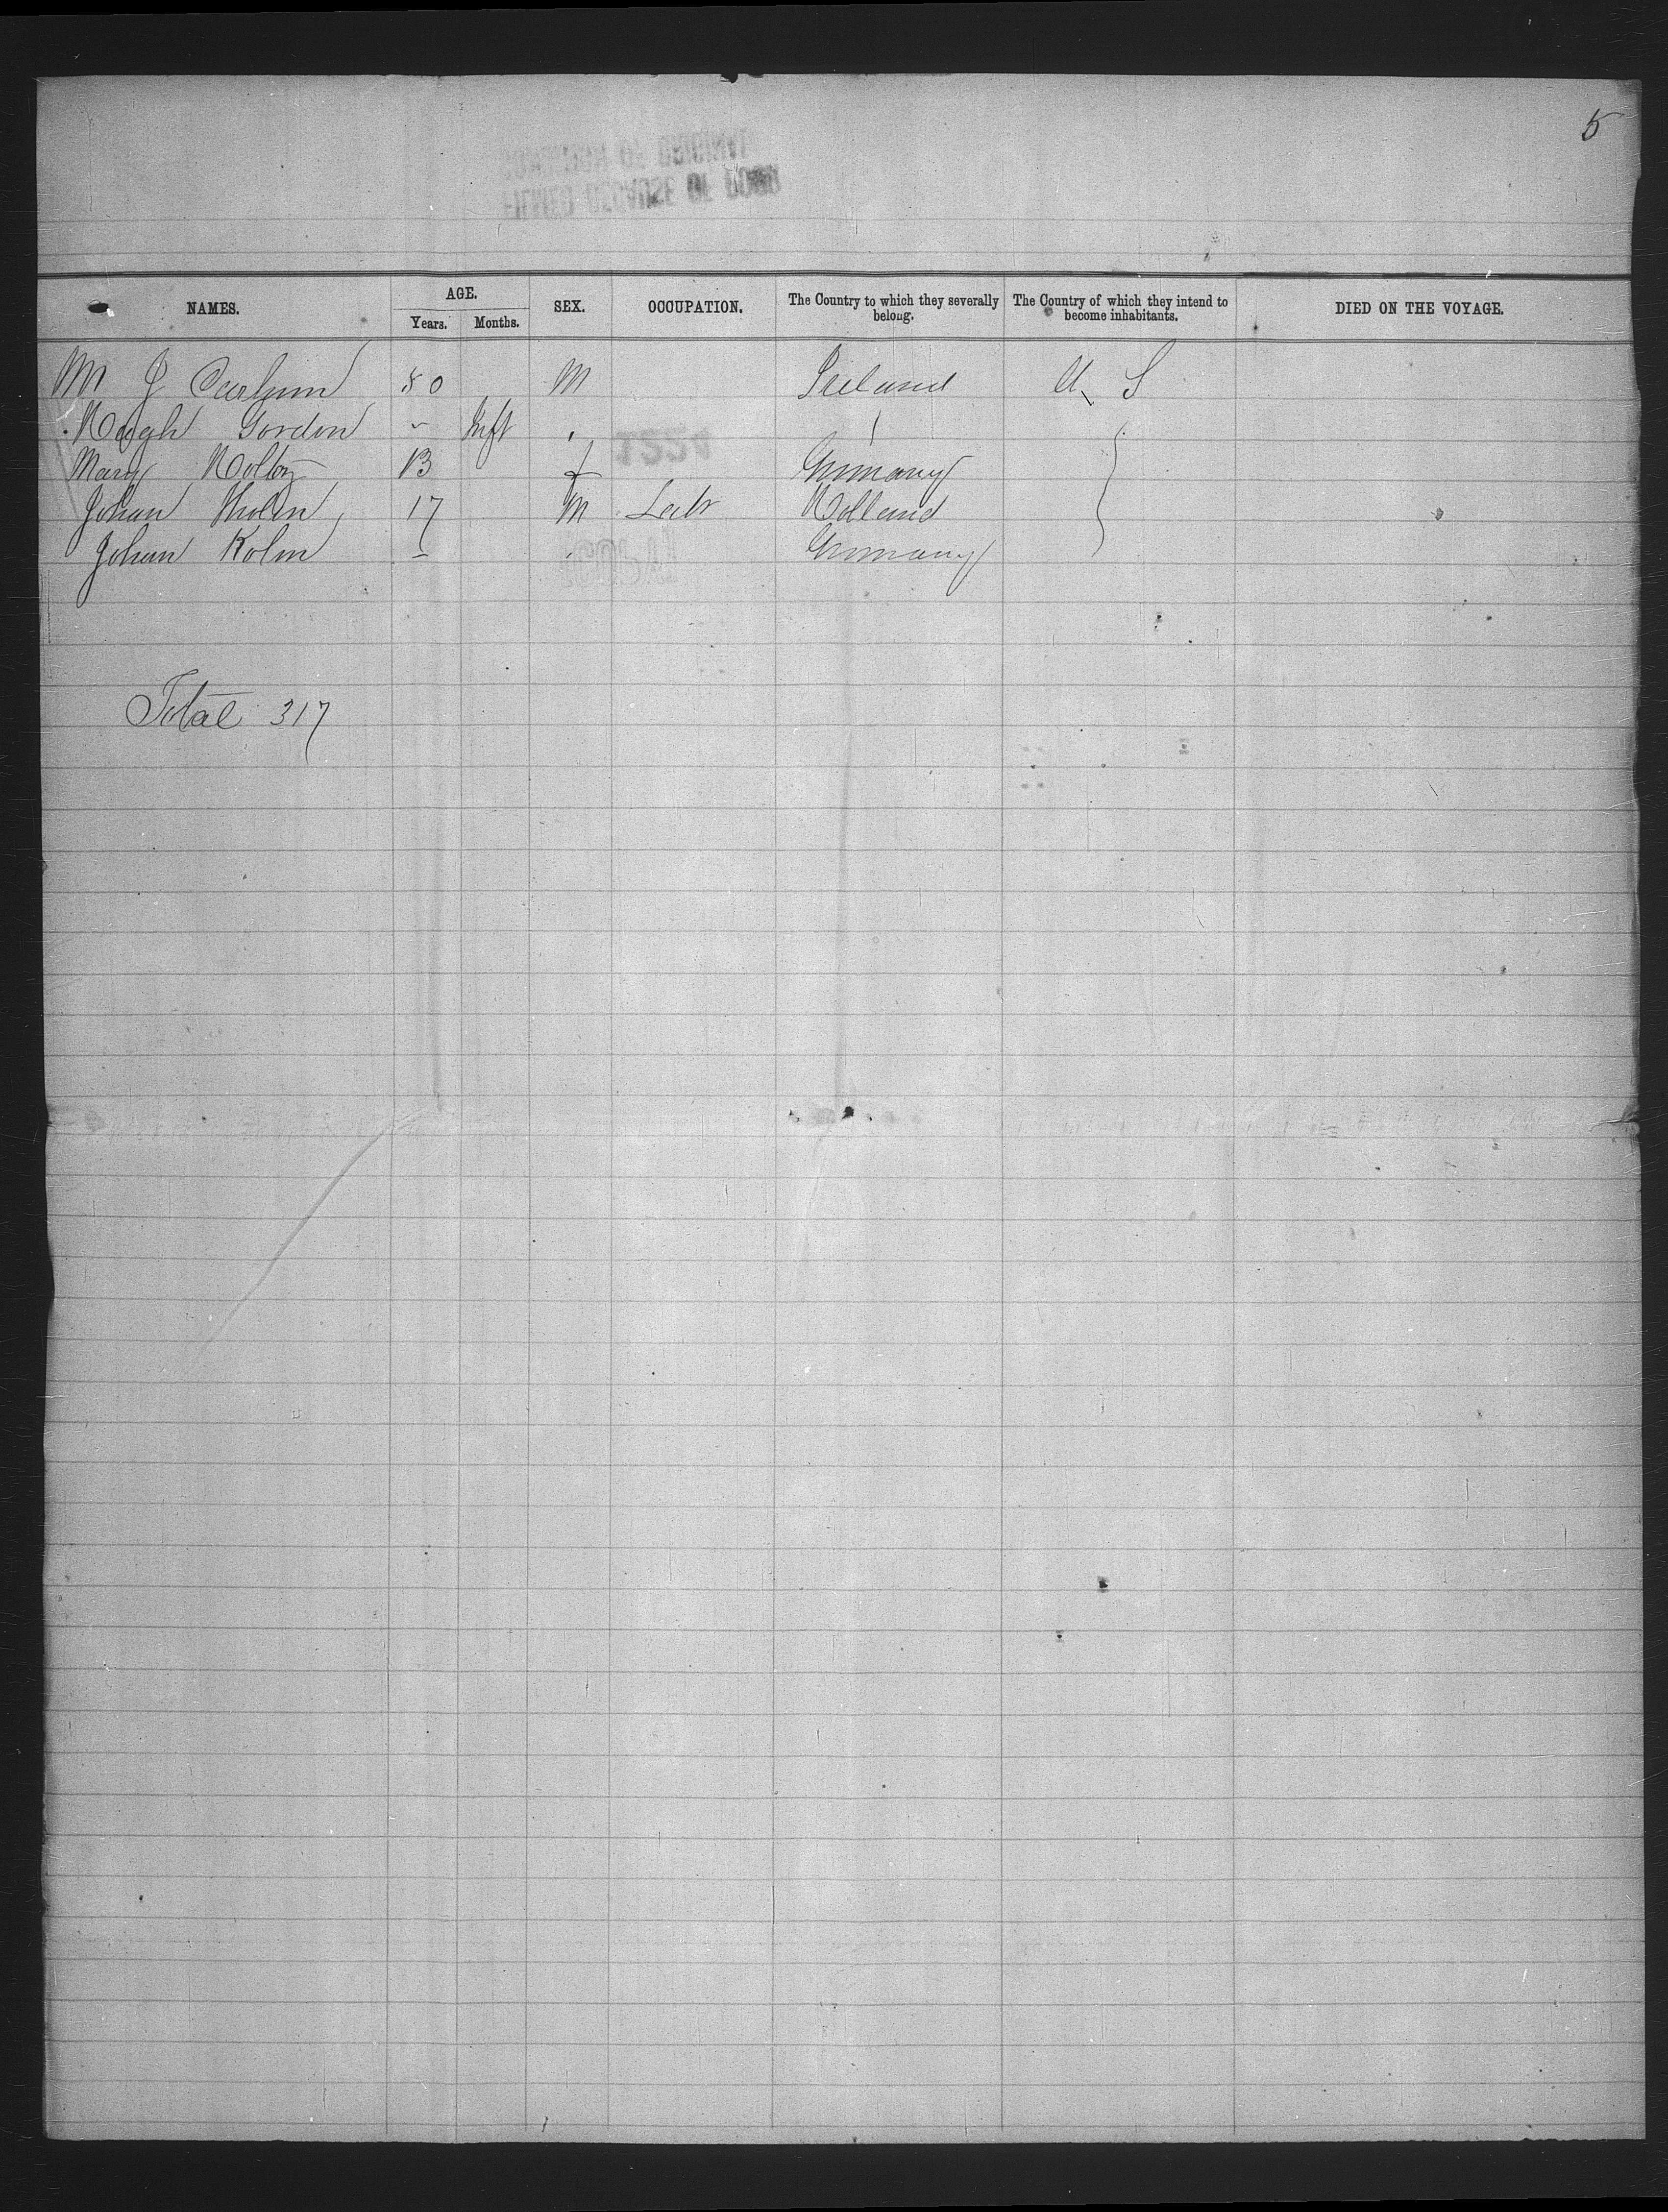 5
NAMES. AGE. SEX. OCCUPATION. The Country to which they severally belong. The Country of which they intend to become inhabitants. DIED ON THE VOYAGE.
Years. Months.
M J 80 M Ireland U S
Hugh Gordon - Inft
Mary Holtz 13 f Germany
Johan 17 M Labr Holland
Johan Kolm - Germany
Total 317